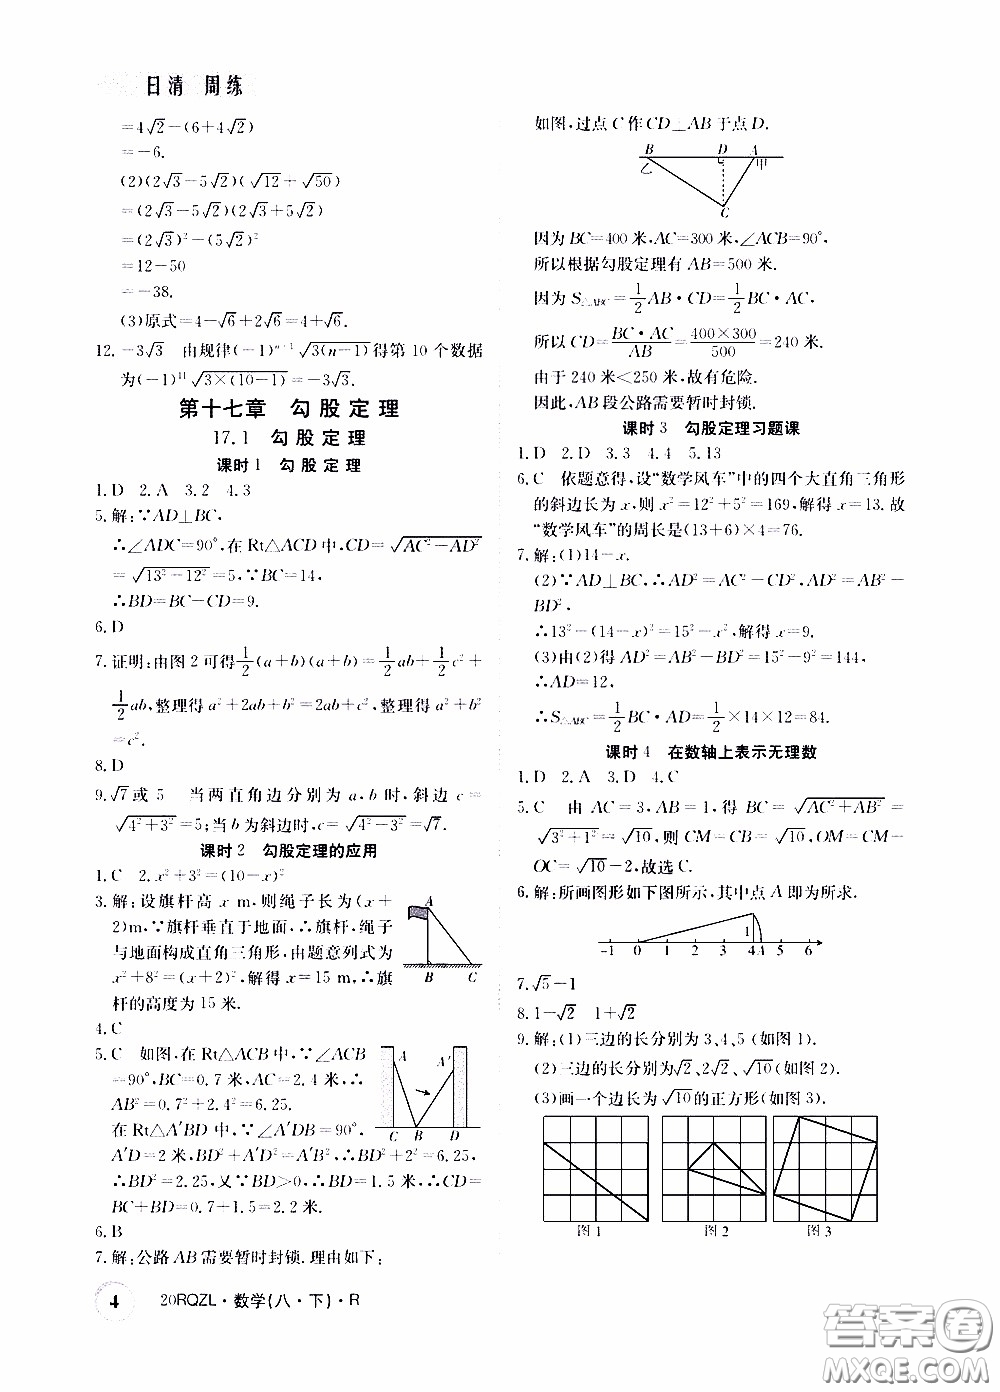 日清 周练
=4√2-(6+4√2)
=-6.
(2)(2√3-5√2)(√12+√50)
=(2√3-5√2)(2√3+5√2)
=(2√3)²-(5√2)²
=12-50
=-38.
(3)原式=4-√6+2√6=4+√6.
12.-3√3 由规律(-1)ⁿ⁺¹√3(n-1)得第 10 个数据
为(-1)¹¹√3×(10-1)=-3√3.
第十七章 勾股定理
17.1 勾股定理
课时1 勾股定理
1.D 2.A 3.2 4.3
5.解:∵AD⊥BC,
∴∠ADC=90°,在 Rt△ACD 中,CD=√AC²-AD²
=√13²-12²=5,∵BC=14,
∴BD=BC-CD=9.
6.D
7.证明:由图 2 可得1/2(a+b)(a+b)=1/2ab+1/2c²+
1/2ab,整理得 a²+2ab+b²=2ab+c²,整理得 a²+b²
=c².
8.D
9.√7或 5 当两直角边分别为 a,b 时,斜边 c=
√4²+3²=5;当 b 为斜边时,c=√4²-3²=√7.
课时2 勾股定理的应用
1.C 2.x²+3²=(10-x)²
3.解:设旗杆高 x m,则绳子长为(x+
2)m,∵旗杆垂直于地面,∴旗杆,绳子
与地面构成直角三角形,由题意列式为
x²+8²=(x+2)²,解得 x=15 m,∴旗
杆的高度为 15 米.
A
B C
4.C
5.C 如图,在 Rt△ACB 中,∵∠ACB
=90°,BC=0.7 米,AC=2.4 米,∴
AB²=0.7²+2.4²=6.25.
在 Rt△A'BD 中,∵∠A'DB=90°,
A'D=2 米,BD²+A'D²=A'B²,∴BD²+2²=6.25,
∴BD²=2.25,又∵BD>0,∴BD=1.5 米,∴CD=
BC+BD=0.7+1.5=2.2 米.
A A'
C B D
6.B
7.解:公路 AB 需要暂时封锁.理由如下:
4 20RQZL·数学(八·下)·R
如图,过点 C 作 CD⊥AB 于点 D.
B D A
乙 甲
C
因为 BC=400 米,AC=300 米,∠ACB=90°,
所以根据勾股定理有 AB=500 米.
因为 S△ABC=1/2AB·CD=1/2BC·AC,
所以 CD=BC·AC/AB=400×300/500=240 米.
由于 240 米<250 米,故有危险.
因此,AB 段公路需要暂时封锁.
课时3 勾股定理习题课
1.D 2.D 3.3 4.4 5.13
6.C 依题意得,设“数学风车”中的四个大直角三角形
的斜边长为 x,则 x²=12²+5²=169,解得 x=13.故
“数学风车”的周长是(13+6)×4=76.
7.解:(1)14-x.
(2)∵AD⊥BC,∴AD²=AC²-CD²,AD²=AB²-
BD²,
∴13²-(14-x)²=15²-x²,解得 x=9.
(3)由(2)得 AD²=AB²-BD²=15²-9²=144,
∴AD=12,
∴S△ABC=1/2BC·AD=1/2×14×12=84.
课时4 在数轴上表示无理数
1.D 2.A 3.D 4.C
5.C 由 AC=3,AB=1,得 BC=√AC²+AB²=
√3²+1²=√10,则 CM=CB=√10,OM=CM-
OC=√10-2,故选 C.
6.解:所画图形如下图所示,其中点 A 即为所求.
1
-1 0 1 2 3 4 A 5 6
7.√5-1
8.1-√2 1+√2
9.解:(1)三边的长分别为 3、4、5 (如图 1).
(2)三边的长分别为√2、2√2、√10(如图 2).
(3)画一个边长为√10的正方形(如图 3).
图 1 图 2 图 3
答案圈
MXQE.COM